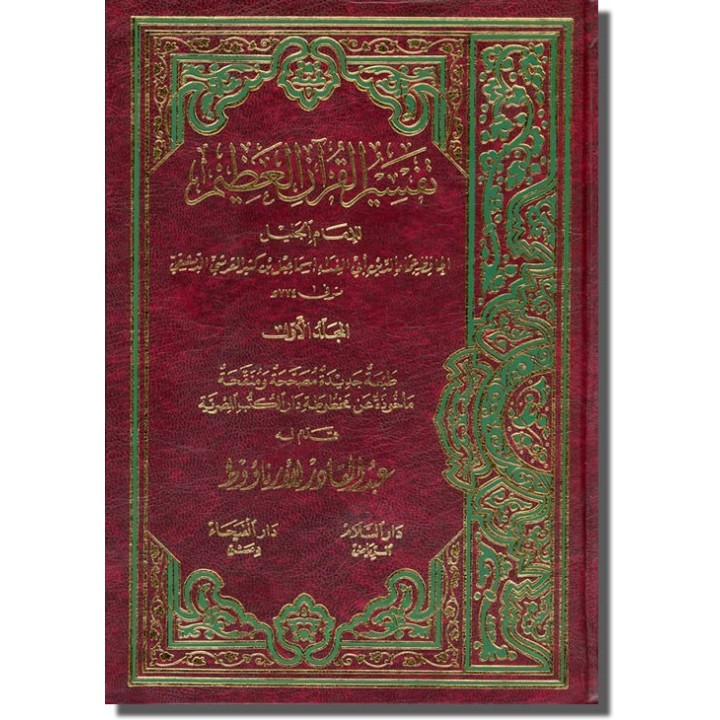 تفسير القرآن العظيم
للإمام الجليل
الحافظ عماد الدين أبي الفداء إسماعيل بن كثير القرشي الدمشقي
توفي ٧٧٤ هـ
المجلد الأول
طبعة جديدة مصححة ومنقحة
مأخوذة عن مخطوطة دار الكتب المصرية
قدم له
عبد القادر الأرناؤوط
دار السلام دار الفيحاء
الرياض دمشق